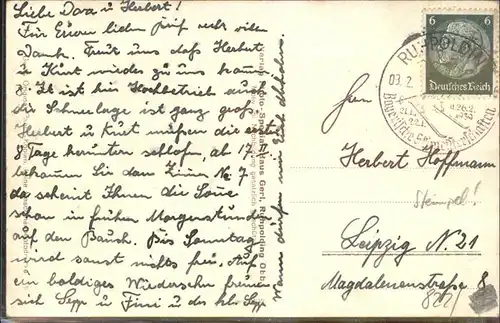 Liebe Dora u Herbert!
Für Euren lieben Brief recht vielen
Dank. Freut uns daß Herbert
u Kurt wieder zu uns kommen
z Zt ist hier Hochbetrieb auch
die Schneelage ist ganz groß.
Herbert u Kurt müßen die ersten
8 Tage herunten schlafen, ab 17. II
bekommen Sie dann Zimer No 7
da scheint Ihnen die Sone
schon in frühen Morgenstunden
auf den Bauch. Bis Sonntag
wird sonst nichts frei. Auf
ein baldiges Wiedersehn freuen
sich Sepp u Fini u des kl. Sepp
Wann dürfen wir Euch abholen.
Ruhpolding Obb
6 6
Deutsches Reich
RUHPOLDING
03.2.
Herrn
Herbert Hoffmann
Stempel!
Leipzig N. 21
Magdalenenstraße 8